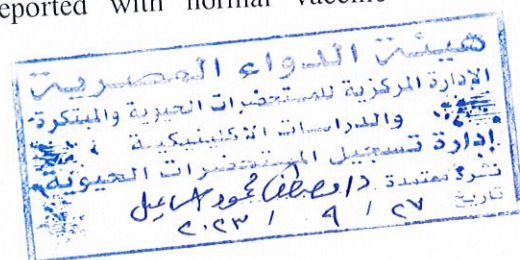 eported with normal vaccine
هيئة الدواء المصرية
الإدارة المركزية للمستحضرات الحيوية والمبتكرة
والدراسات الاكلينيكية
إدارة تسجيل المستحضرات الحيوية
نشرة معتمدة د/ مصطفى محمود اسماعيل
تاريخ ٢٧ / ٩ / ٢٠٢٣